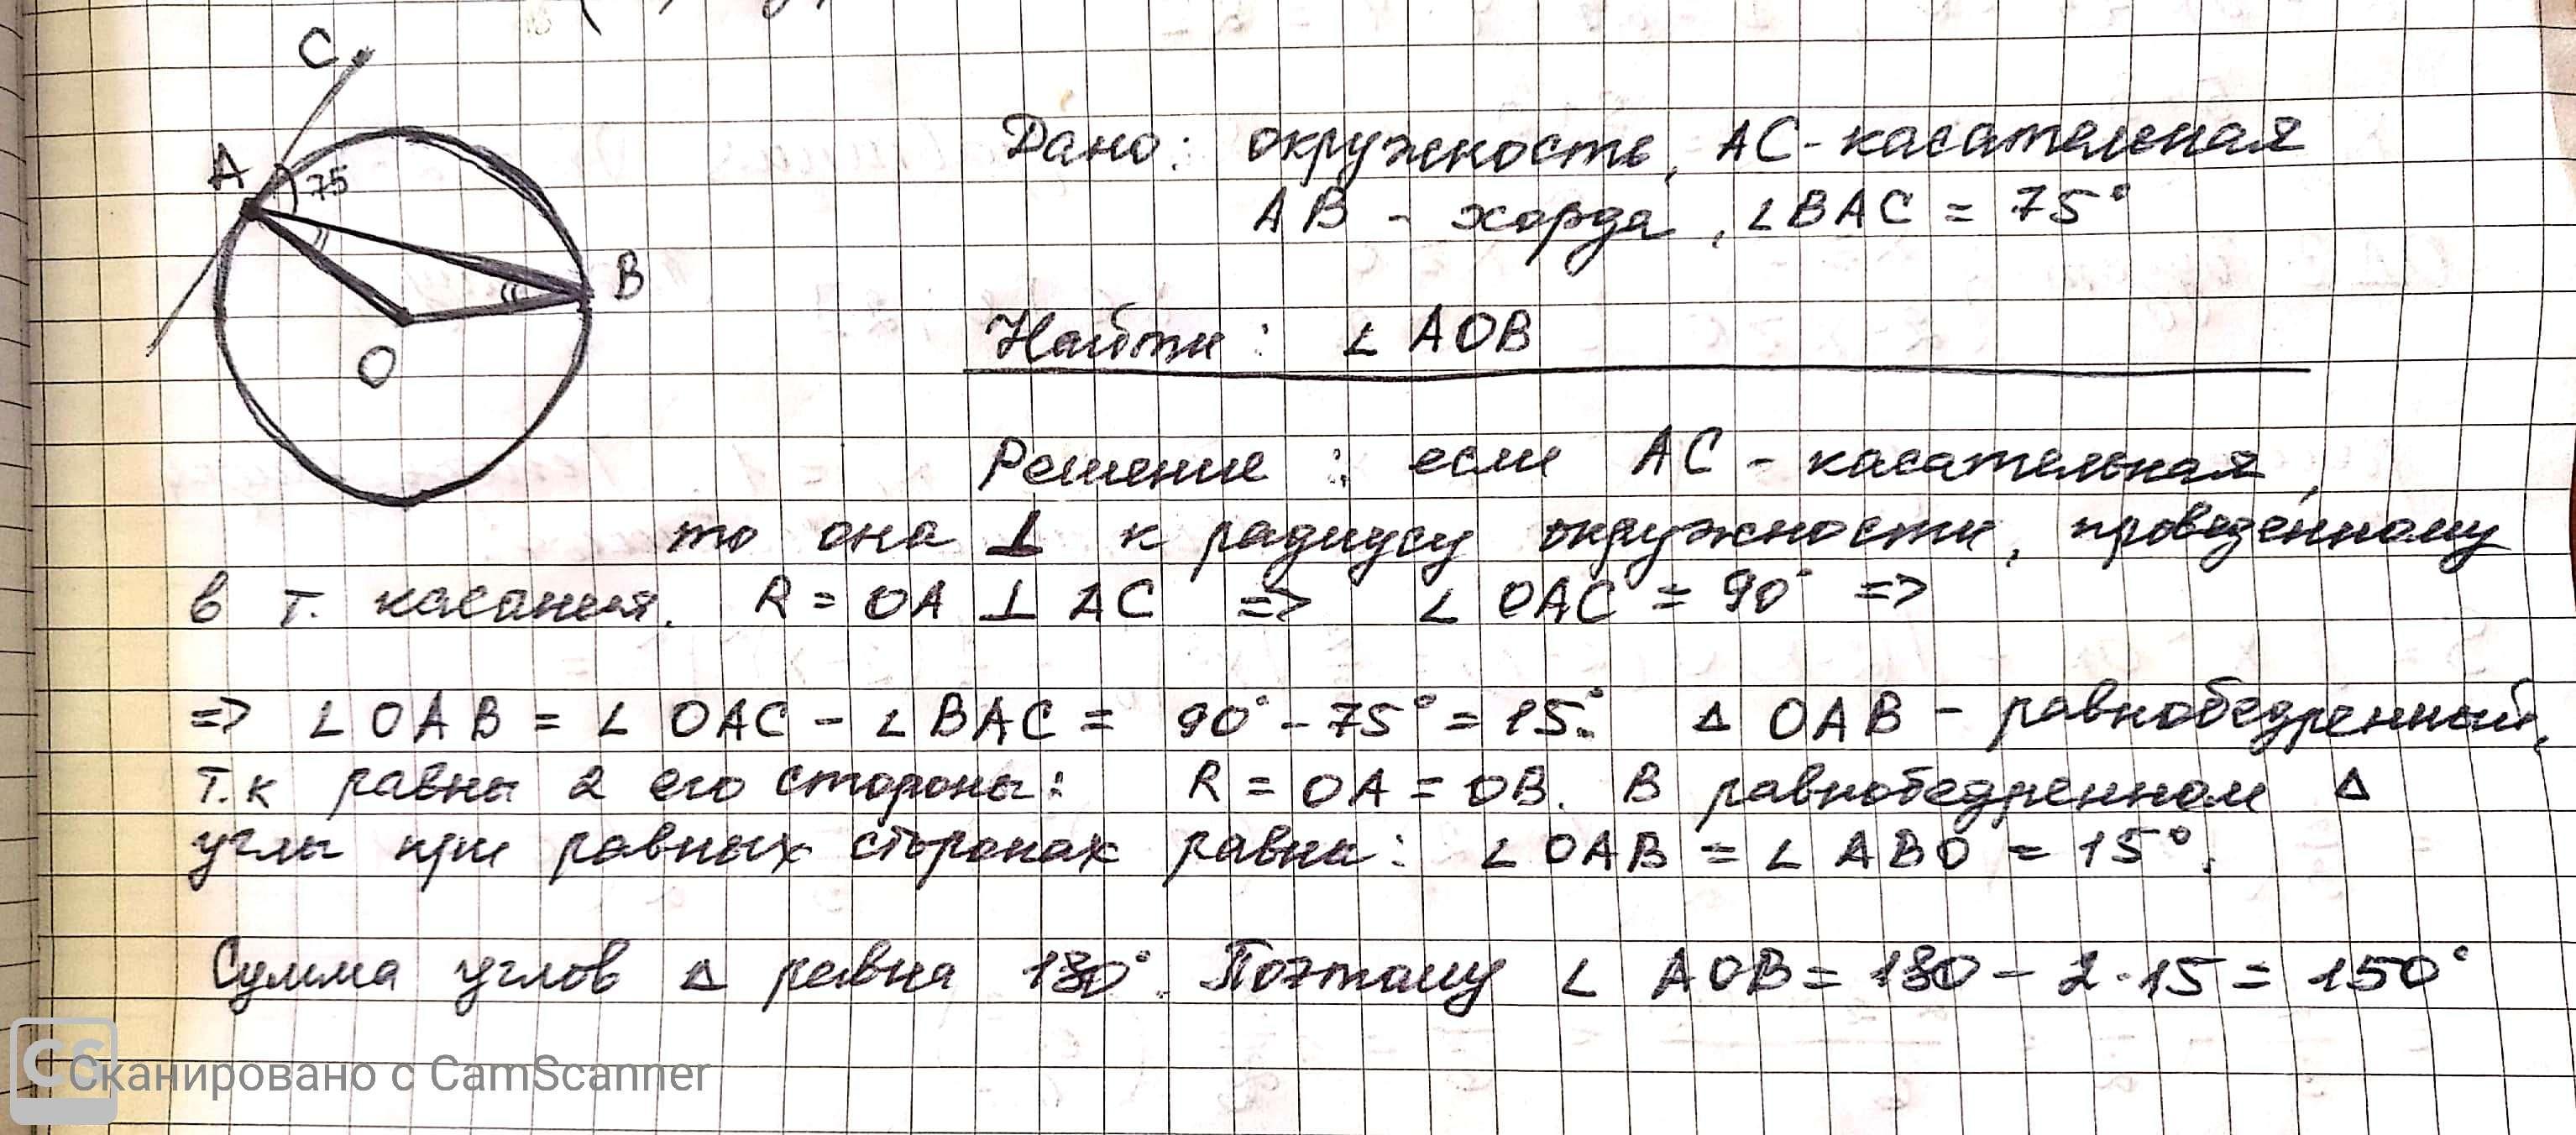 C
A
75
B
O
Дано: окружность, AC - касательная
AB - хорда, ∠BAC = 75°
Найти: ∠AOB
Решение: если AC - касательная,
то она ⊥ к радиусу окружности, проведенному
в т. касания. R = OA ⊥ AC => ∠OAC = 90° =>
=> ∠OAB = ∠OAC - ∠BAC = 90° - 75° = 15°. Δ OAB - равнобедренный,
т.к равны 2 его стороны: R = OA = OB. В равнобедренном Δ
углы при равных сторонах равны: ∠OAB = ∠ABO = 15°.
Сумма углов Δ равна 180°. Поэтому ∠AOB = 180 - 2·15 = 150°
CS Сканировано с CamScanner